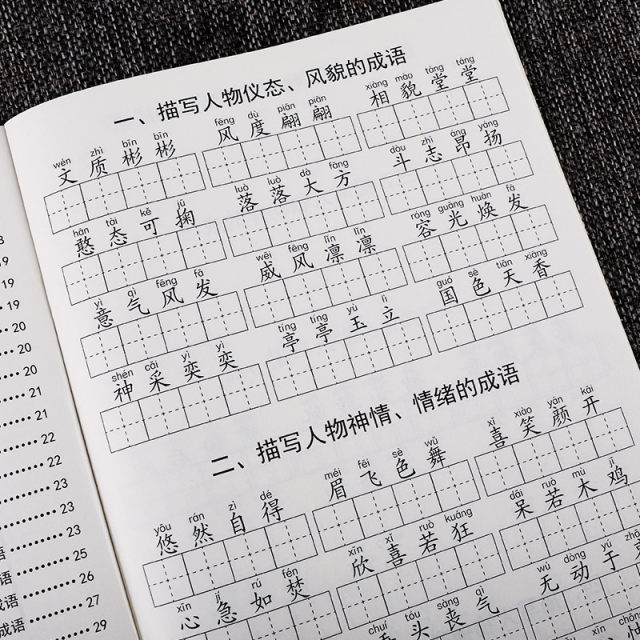 8
19
19
19
20
20
20
21
21
22
22
23
23
23
25
26
27
29
语
语
成语
语
一、描写人物仪态、风貌的成语
wén zhì bīn bīn fēng dù piān piān xiàng mào táng táng
文质彬彬 风度翩翩 相貌堂堂
hān tài kě jū luò luò dà fāng dòu zhì áng yáng
憨态可掬 落落大方 斗志昂扬
yì qì fēng fā wēi fēng lǐn lǐn róng guāng huàn fā
意气风发 威风凛凛 容光焕发
shén cǎi yì yì tíng tíng yù lì guó sè tiān xiāng
神采奕奕 亭亭玉立 国色天香
二、描写人物神情、情绪的成语
yōu rán zì dé méi fēi sè wǔ xǐ xiào yán kāi
悠然自得 眉飞色舞 喜笑颜开
xīn jí rú fén xīn xǐ ruò kuáng dāi ruò mù jī
心急如焚 欣喜若狂 呆若木鸡
chuí tóu sàng qì wú dòng yú
头丧气 无动于